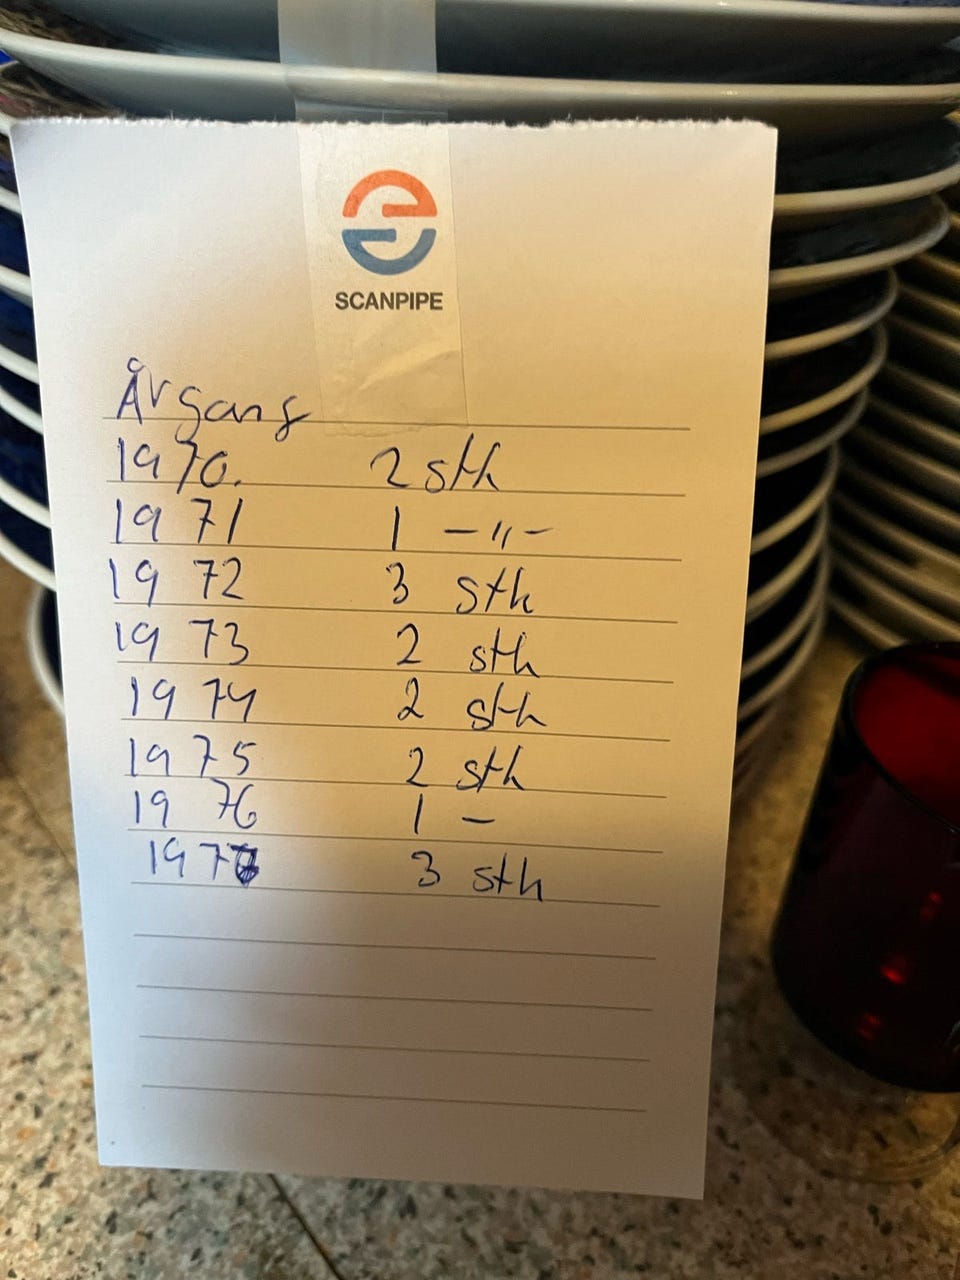 SCANPIPE
Årgang
1970. 2 stk
1971 1 -〃-
1972 3 stk
1973 2 stk
1974 2 stk
1975 2 stk
1976 1 -
1977 3 stk